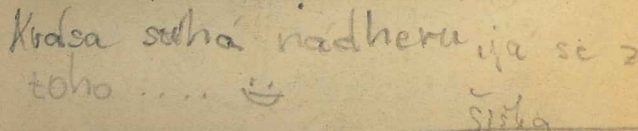 Krása suhá nádheru, ja se z
toho ....
Šiška